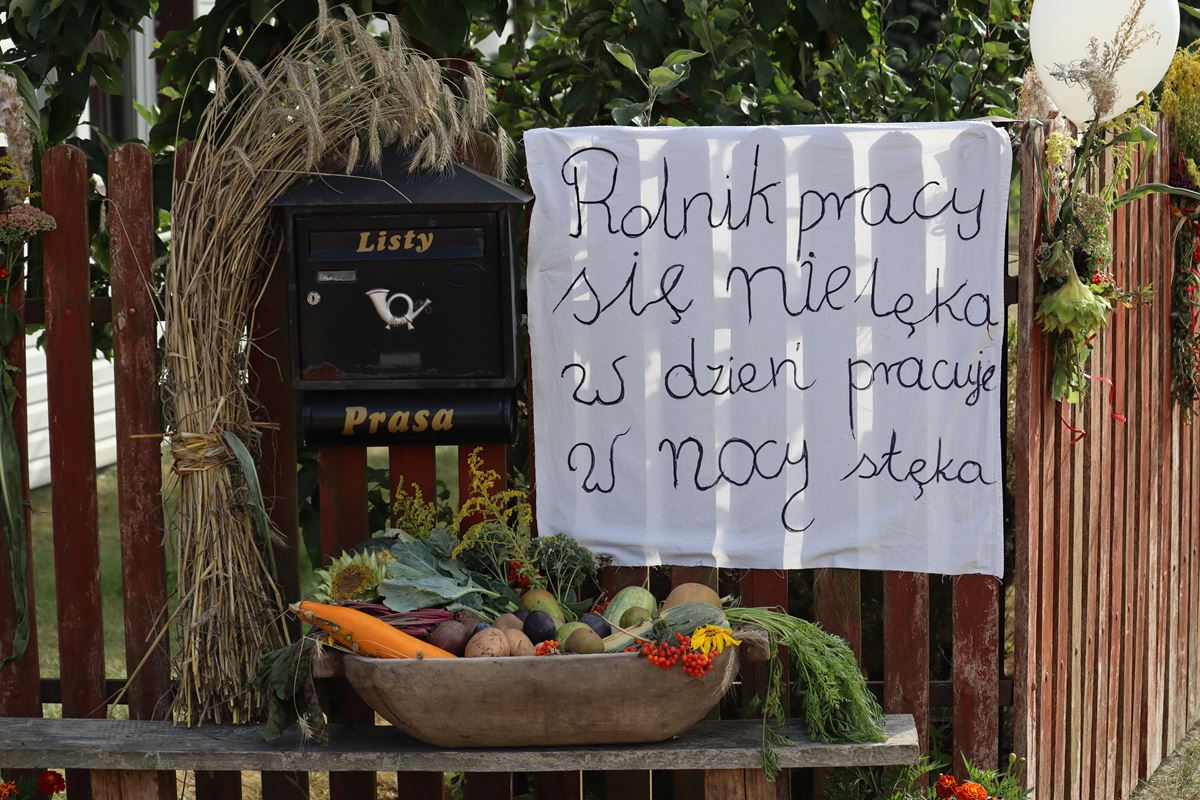 Listy
Prasa
Rolnik pracy
się nie lęka
w dzień pracuje
w nocy stęka